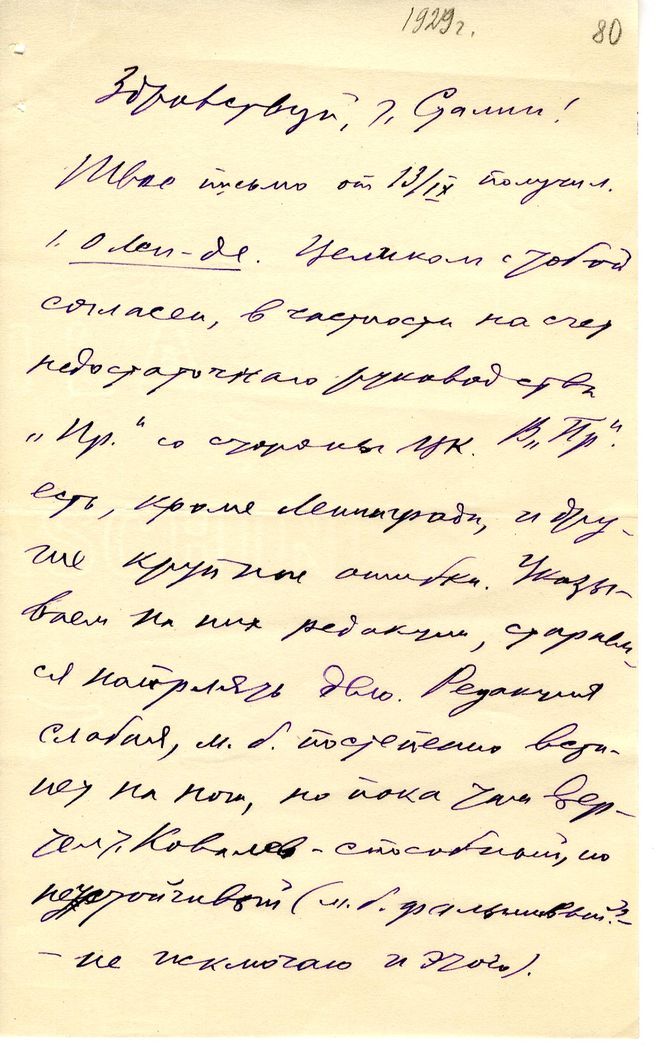 1929 г.
80
Здравствуй, т. Сталин!
Твое письмо от 13/IX получил.
1. О Лен-де. Целиком с тобой
согласен, в частности насчет
недостаточного руководства
„Пр.“ со стороны ЦК. В „Пр“.
есть, кроме Ленинграда, и дру-
гие крупные ошибки. Указы-
ваем на них редакции, стараем-
ся направлять дело. Редакция
слабая, м. б. постепенно вста-
нет на ноги, но пока там вер-
тел т. Ковалев – способный, но
неустойчивый (м. б. фальшивый? –
– не исключаю и этого).